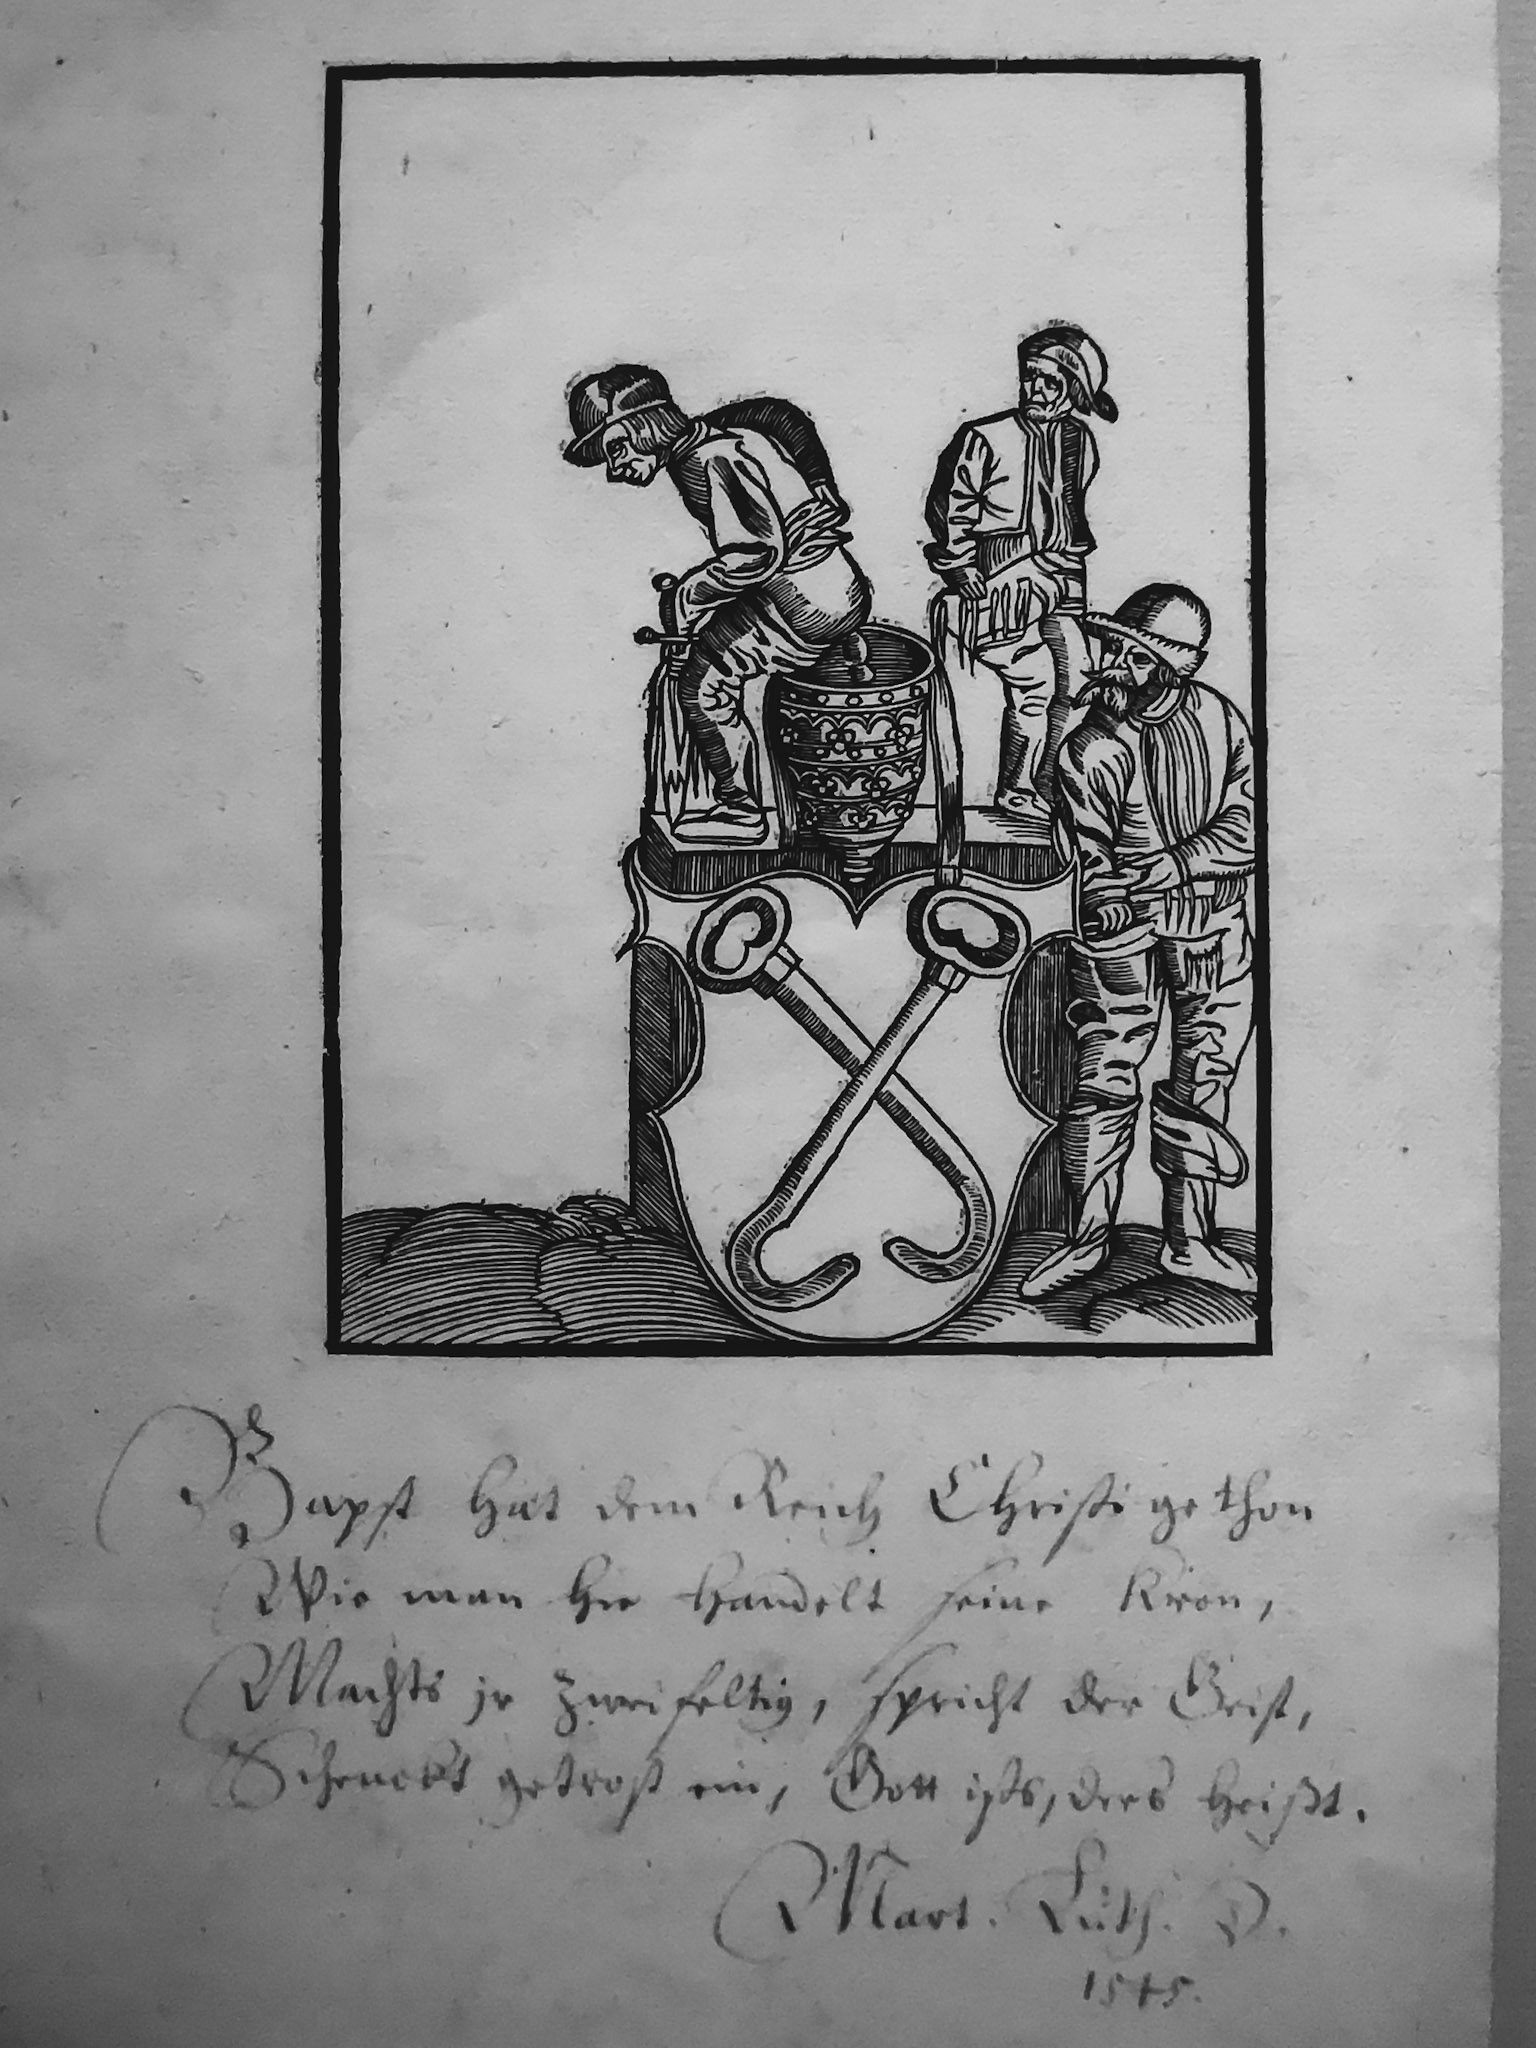 Bapst hat dem Reich Christi gethon
Wie man hie handelt seine Kron,
Machts jr zweifeltig, spricht der Geist,
Schenckt getrost ein, Gott ists, ders heißt.
Mart. Luth. D.
1545.